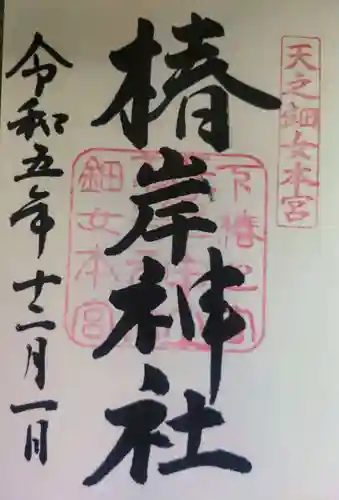 天之鈿女本宮
椿岸神社
鈿女本宮
令和五年十二月一日